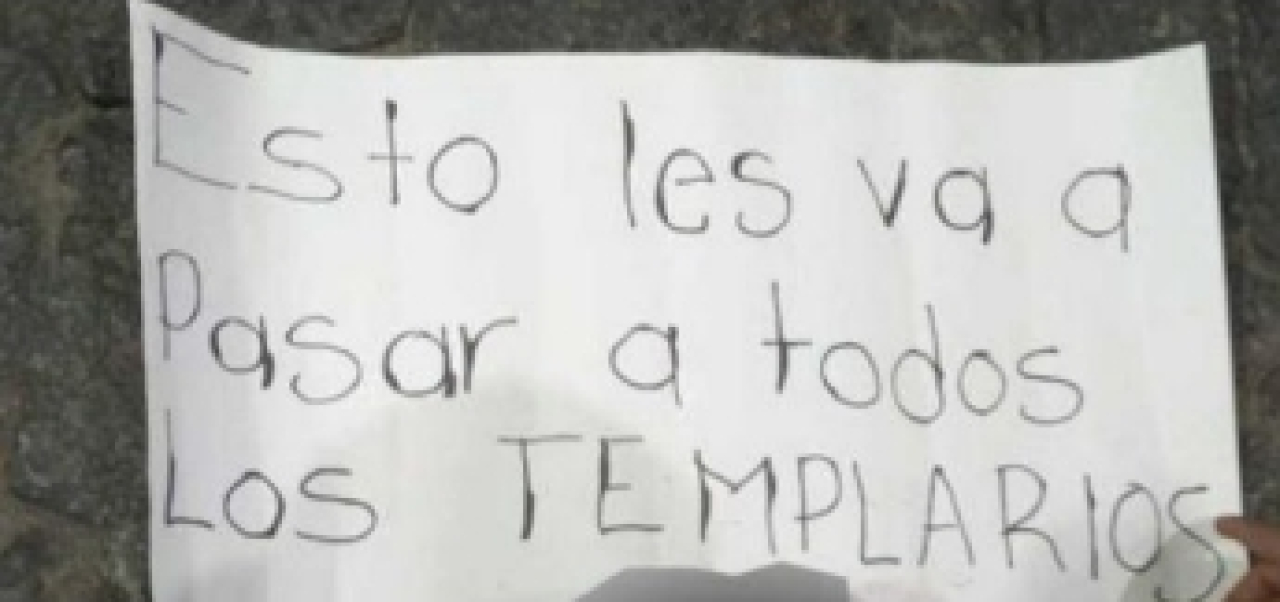 Esto les va a
Pasar a todos
Los TEMPLARIOS